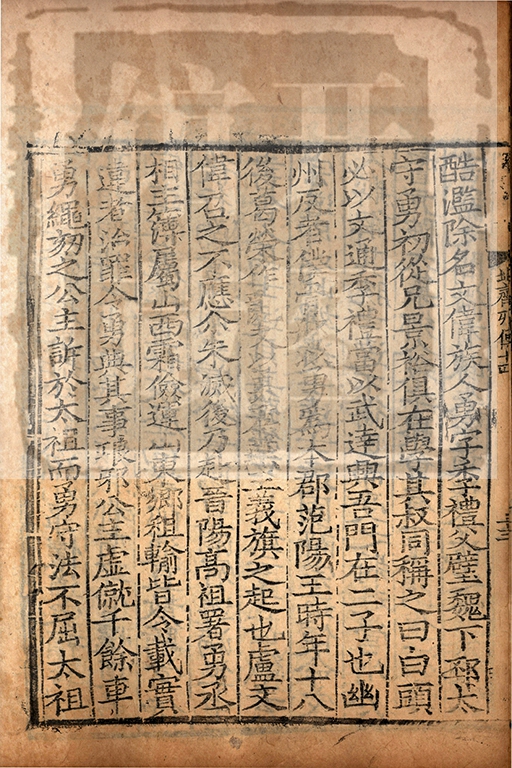 北齊列傳十四
酷濫除名文偉族人勇字季禮父璧魏下邳太
守勇初從兄景裕俱在學其叔同稱之曰白頭
必以文通季禮當以武達興吾門在二子也幽
州反者以勇爲本郡范陽王時年十八
後葛榮作亂又以勇爲燕王義旗之起也盧文
偉召之不應尒朱滅後乃赴晉陽高祖署勇丞
相主簿屬山西霜儉運山東鄉租輸皆令載實
違者治罪令勇典其事琅邪公主虛僦千餘車
勇繩劾之公主訴於太祖而勇守法不屈太祖